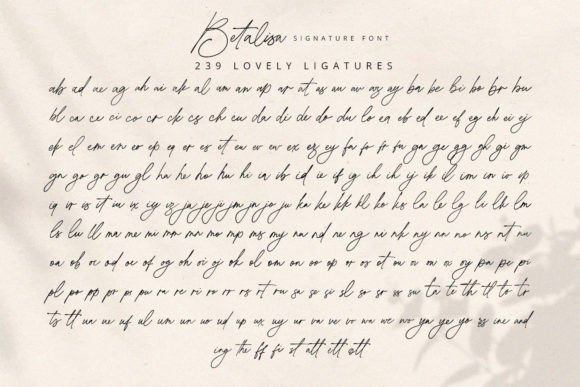 Betalisa SIGNATURE FONT
239 LOVELY LIGATURES
ab ad ae ag ah ai ak al am an ap ar at as au av ax ay ba be bi bo br bu
bl ca ce ci co cr ck cs ch cu da di de do du lo eb ed ee ef eg eh ei ej
ek el em en er ep eq er es et eu ev ew ex ez ey fa fo fr fu ga ge gg gh gi gm
gn go gr gu gl ha he ho hu hi ia ib id ie if ig ih ij ik il im in io ip
iq ir is it iu ix iy iz ja je ji jm jn jo ju ka ke kk kl ko ks la le lg li lk lm
ls lu ll ma me mi mm mn mo mp ms my na nd ne ng ni nk ny nn no ns nt nu
oa ob oc od oe of og oh oi oj ok ol om on oo op or os ot ou ov ow ox oy pa pe pi
pl po pp pr ps pu ra re ri ro rr rs rt ru sa se si sl so sr ss su ta te th tl to tr
ts tt ua ue uf ul um un uo ud up ux uy ur va ve vo wa we wo ya ye yo zz ine and
ing the ff fi st att ett ott